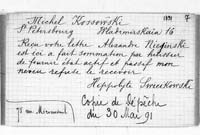 Michel Kossowski 1891 7
St Petersbourg Wladimirskaia 16
Reçu votre lettre Alexandre Niezinski
est ici a fait sommation par huissier
de fournir état actif et passif mon
neveu refuse le recevoir
Hyppolyte
Copie de Dépêche
du 30 Mai 91
78 rue Miromesnil